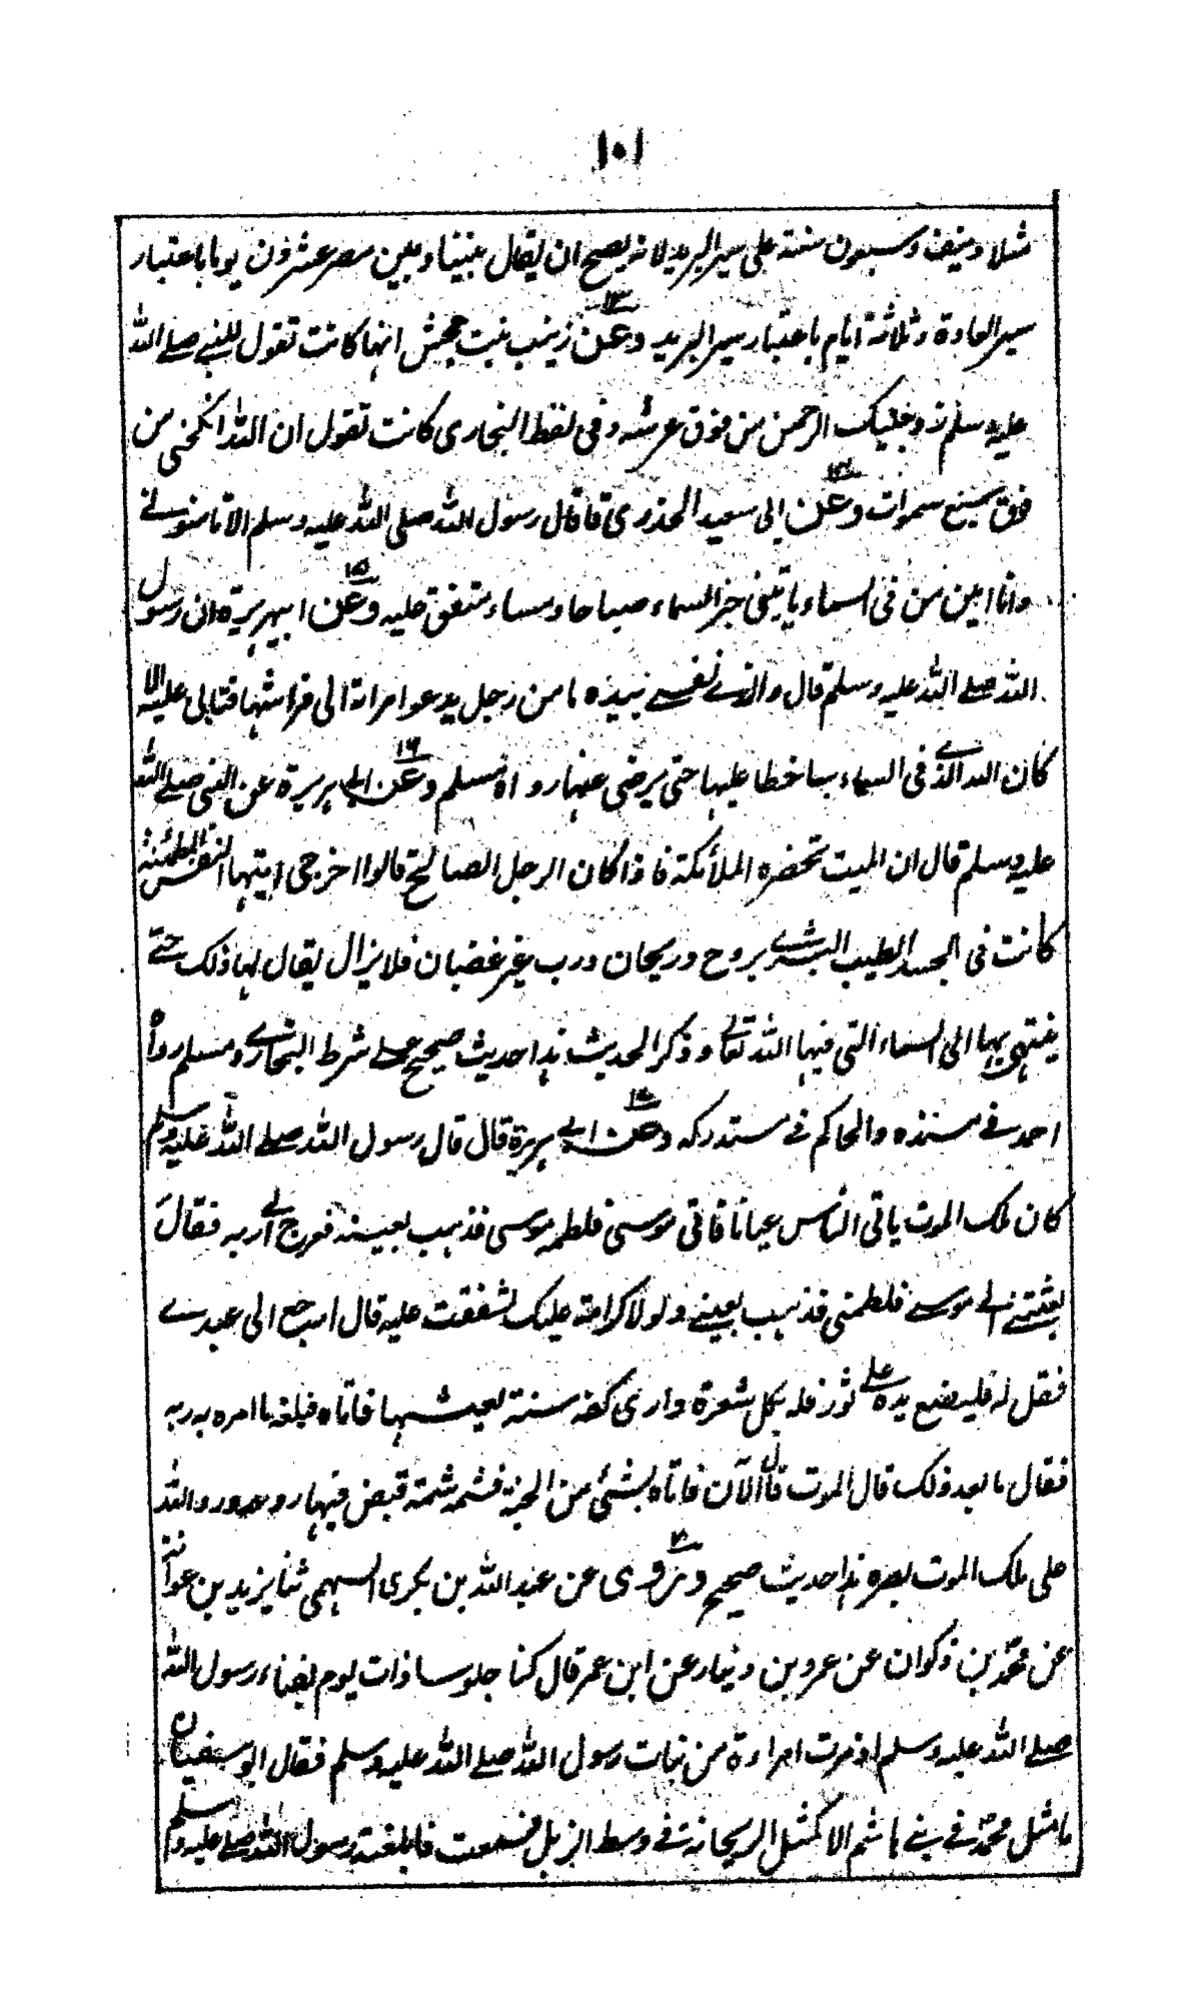 ١٠١
مثلا ونيف وسبعون سنة على سير البريد لانه يصح ان يقال بيننا وبين مصر عشرون يوما باعتبار
سير العادة وثلاثة ايام باعتبار سير البريد ١٣ وعن زينب بنت جحش انها كانت تقول للنبي صلى الله
عليه وسلم زوجنيك الرحمن من فوق عرشه وفي لفظ البخارى كانت تقول ان الله انكحنى من
فوق سبع سموات ١٤ وعن ابى سعيد الخذرى قا قال رسول الله صلى الله عليه وسلم الا تامنونى
وانا امين من فى السماء ياتينى خبر السماء صباحا ومساء متفق عليه ١٥ وعن ابيهريرة ان رسول
الله صلى الله عليه وسلم قال والذى نفسى بيده ما من رجل يدعو امراته الى فراشها فتابى عليه الا
كان الله الذى فى السماء ساخطا عليها حتى يرضى عنها رواه مسلم ١٦ وعن ابى هريرة عن النبى صلى الله
عليه وسلم قال ان الميت تحضره الملائكة فاذا كان الرجل الصالح قالوا اخرجى ايتها النفس المطمئنة
كانت فى الجسد الطيب ابشرى بروح وريحان ورب غير غضبان فلا يزال يقال لها ذلك حتى
ينتهى بها الى السماء التى فيها الله تعالى وذكر الحديث هذا حديث صحيح على شرط البخارى ومسلم رواه
احمد فى مسنده والحاكم فى مستدركه ١٧ وعن ابى هريرة قال قال رسول الله صلى الله عليه وسلم
كان ملك الموت ياتى الناس عيانا فاتى موسى فلطمه موسى فذهب بعينه فعرج الى ربه فقال
بعثتنى الى موسى فلطمنى فذهب بعينى ولولا كرامته عليك لشققت عليه قال ارجع الى عبدى
فقل له فليضع يده على ثور فله بكل شعرة وارى كفه سنة يعيشها فاتاه فبلغه ما امره به ربه
فقال ما بعد ذلك قال الموت قال الآن فاتاه بشئ من الجنة فشمه شمة قبض فيها روحه ورد الله
على ملك الموت بصره هذا حديث صحيح وروى عن عبد الله بن بكرى السهمى ثنا يزيد بن عوانة
عن محمد بن ذكوان عن عمرو بن دينار عن ابن عمر قال كنا جلوسا ذات يوم بفناء رسول الله
صلى الله عليه وسلم اذ مرت امراءة من بنات رسول الله صلى الله عليه وسلم فقال ابو سفيان
ما مثل محمد فى بنى هاشم الا كمثل الريحانة فى وسط الزبل فسمعت فابلغته رسول الله صلى عليه وسلم